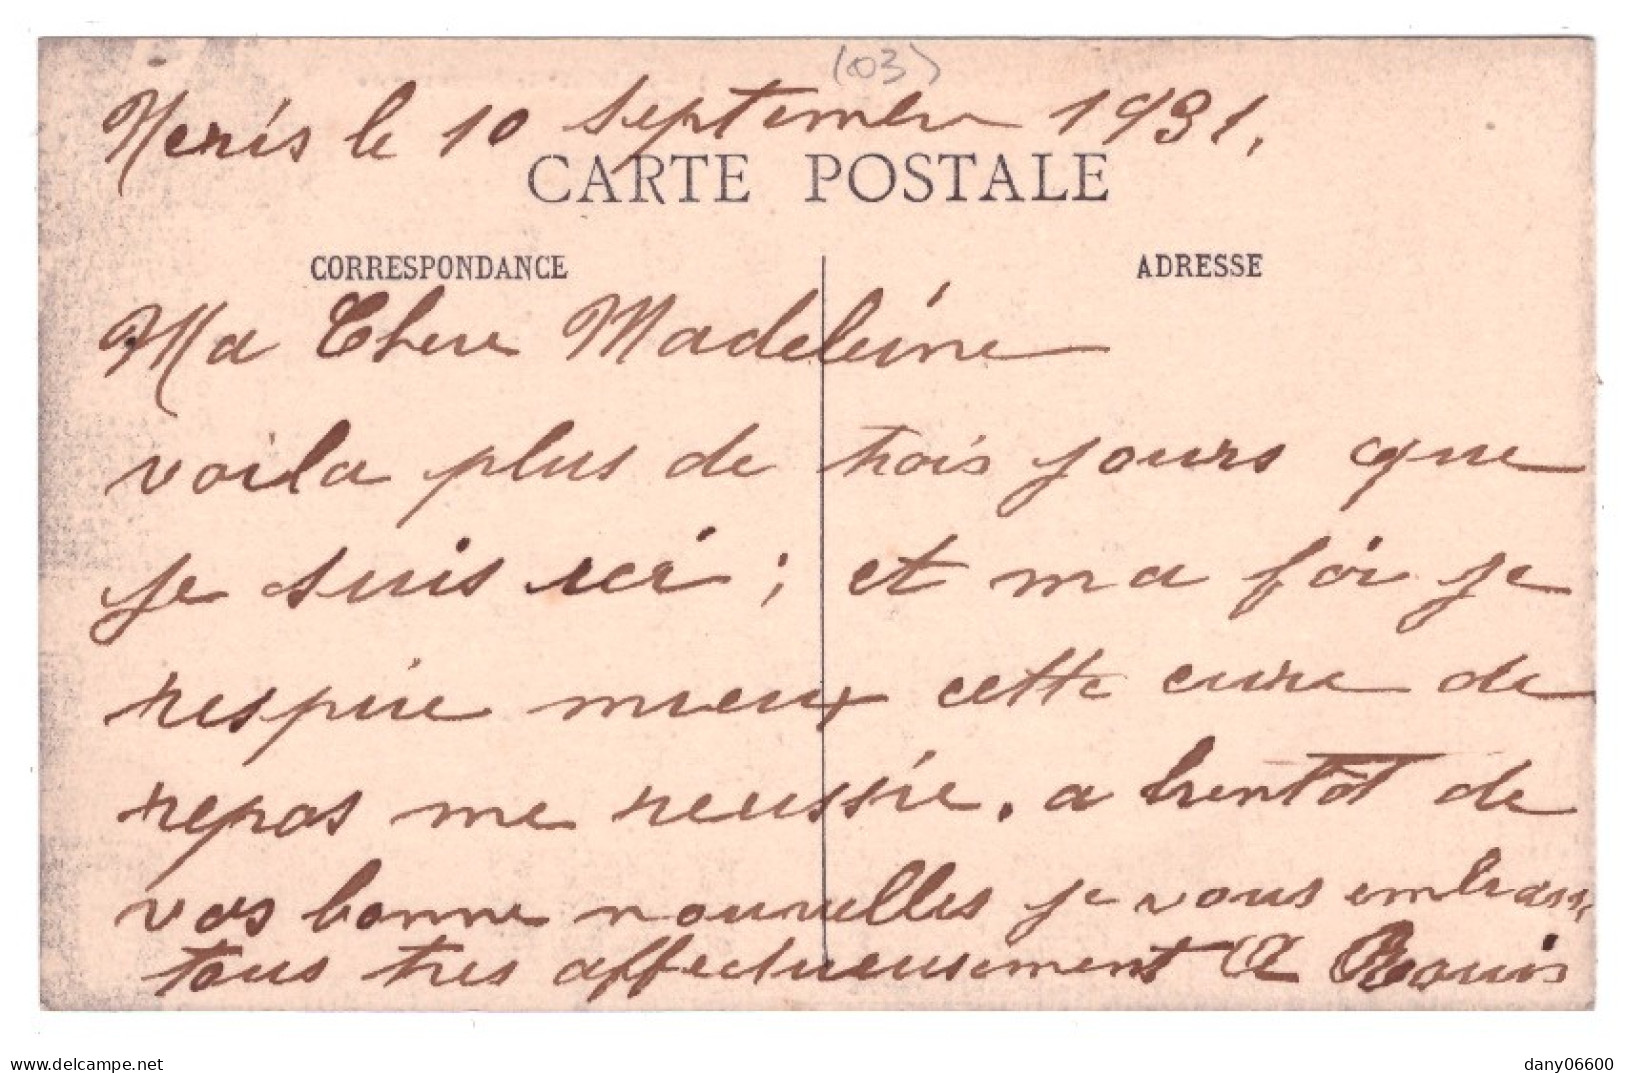 (03)
Neris le 10 Septembre 1931,
CARTE POSTALE
CORRESPONDANCE
ADRESSE
Ma Chere Madeleine
voila plus de trois jours que
je suis ici ; et ma foi je
respire mieux cette cure de
repos me reussie. a bientôt de
vos bonne nouvelles je vous embrasse
tous tres affectueusement A
delcampe.net
dany06600